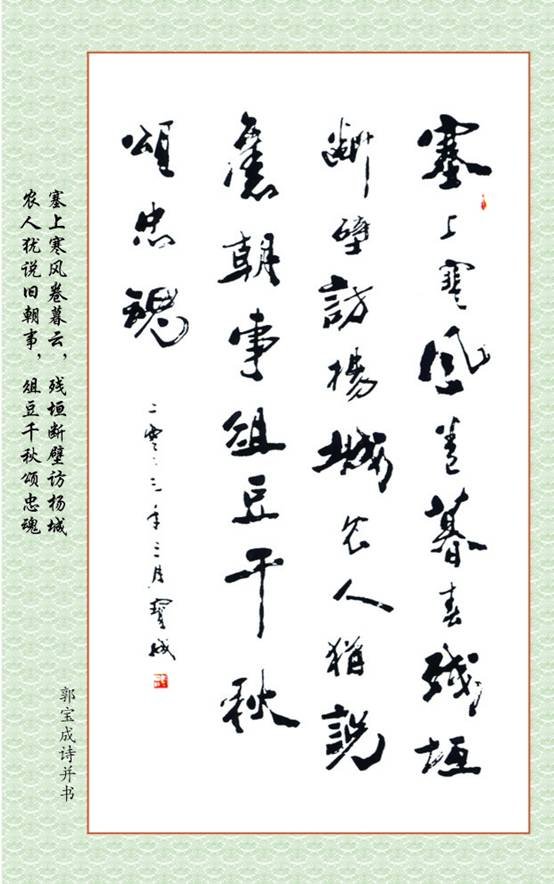 塞上寒風卷暮残垣
斷壁訪楊城农人猶說
舊朝事俎豆千秋
頌忠魂
二零零三年三月寶成
塞上寒风卷暮云，残垣断壁访杨城
农人犹说旧朝事，俎豆千秋颂忠魂
郭宝成诗并书